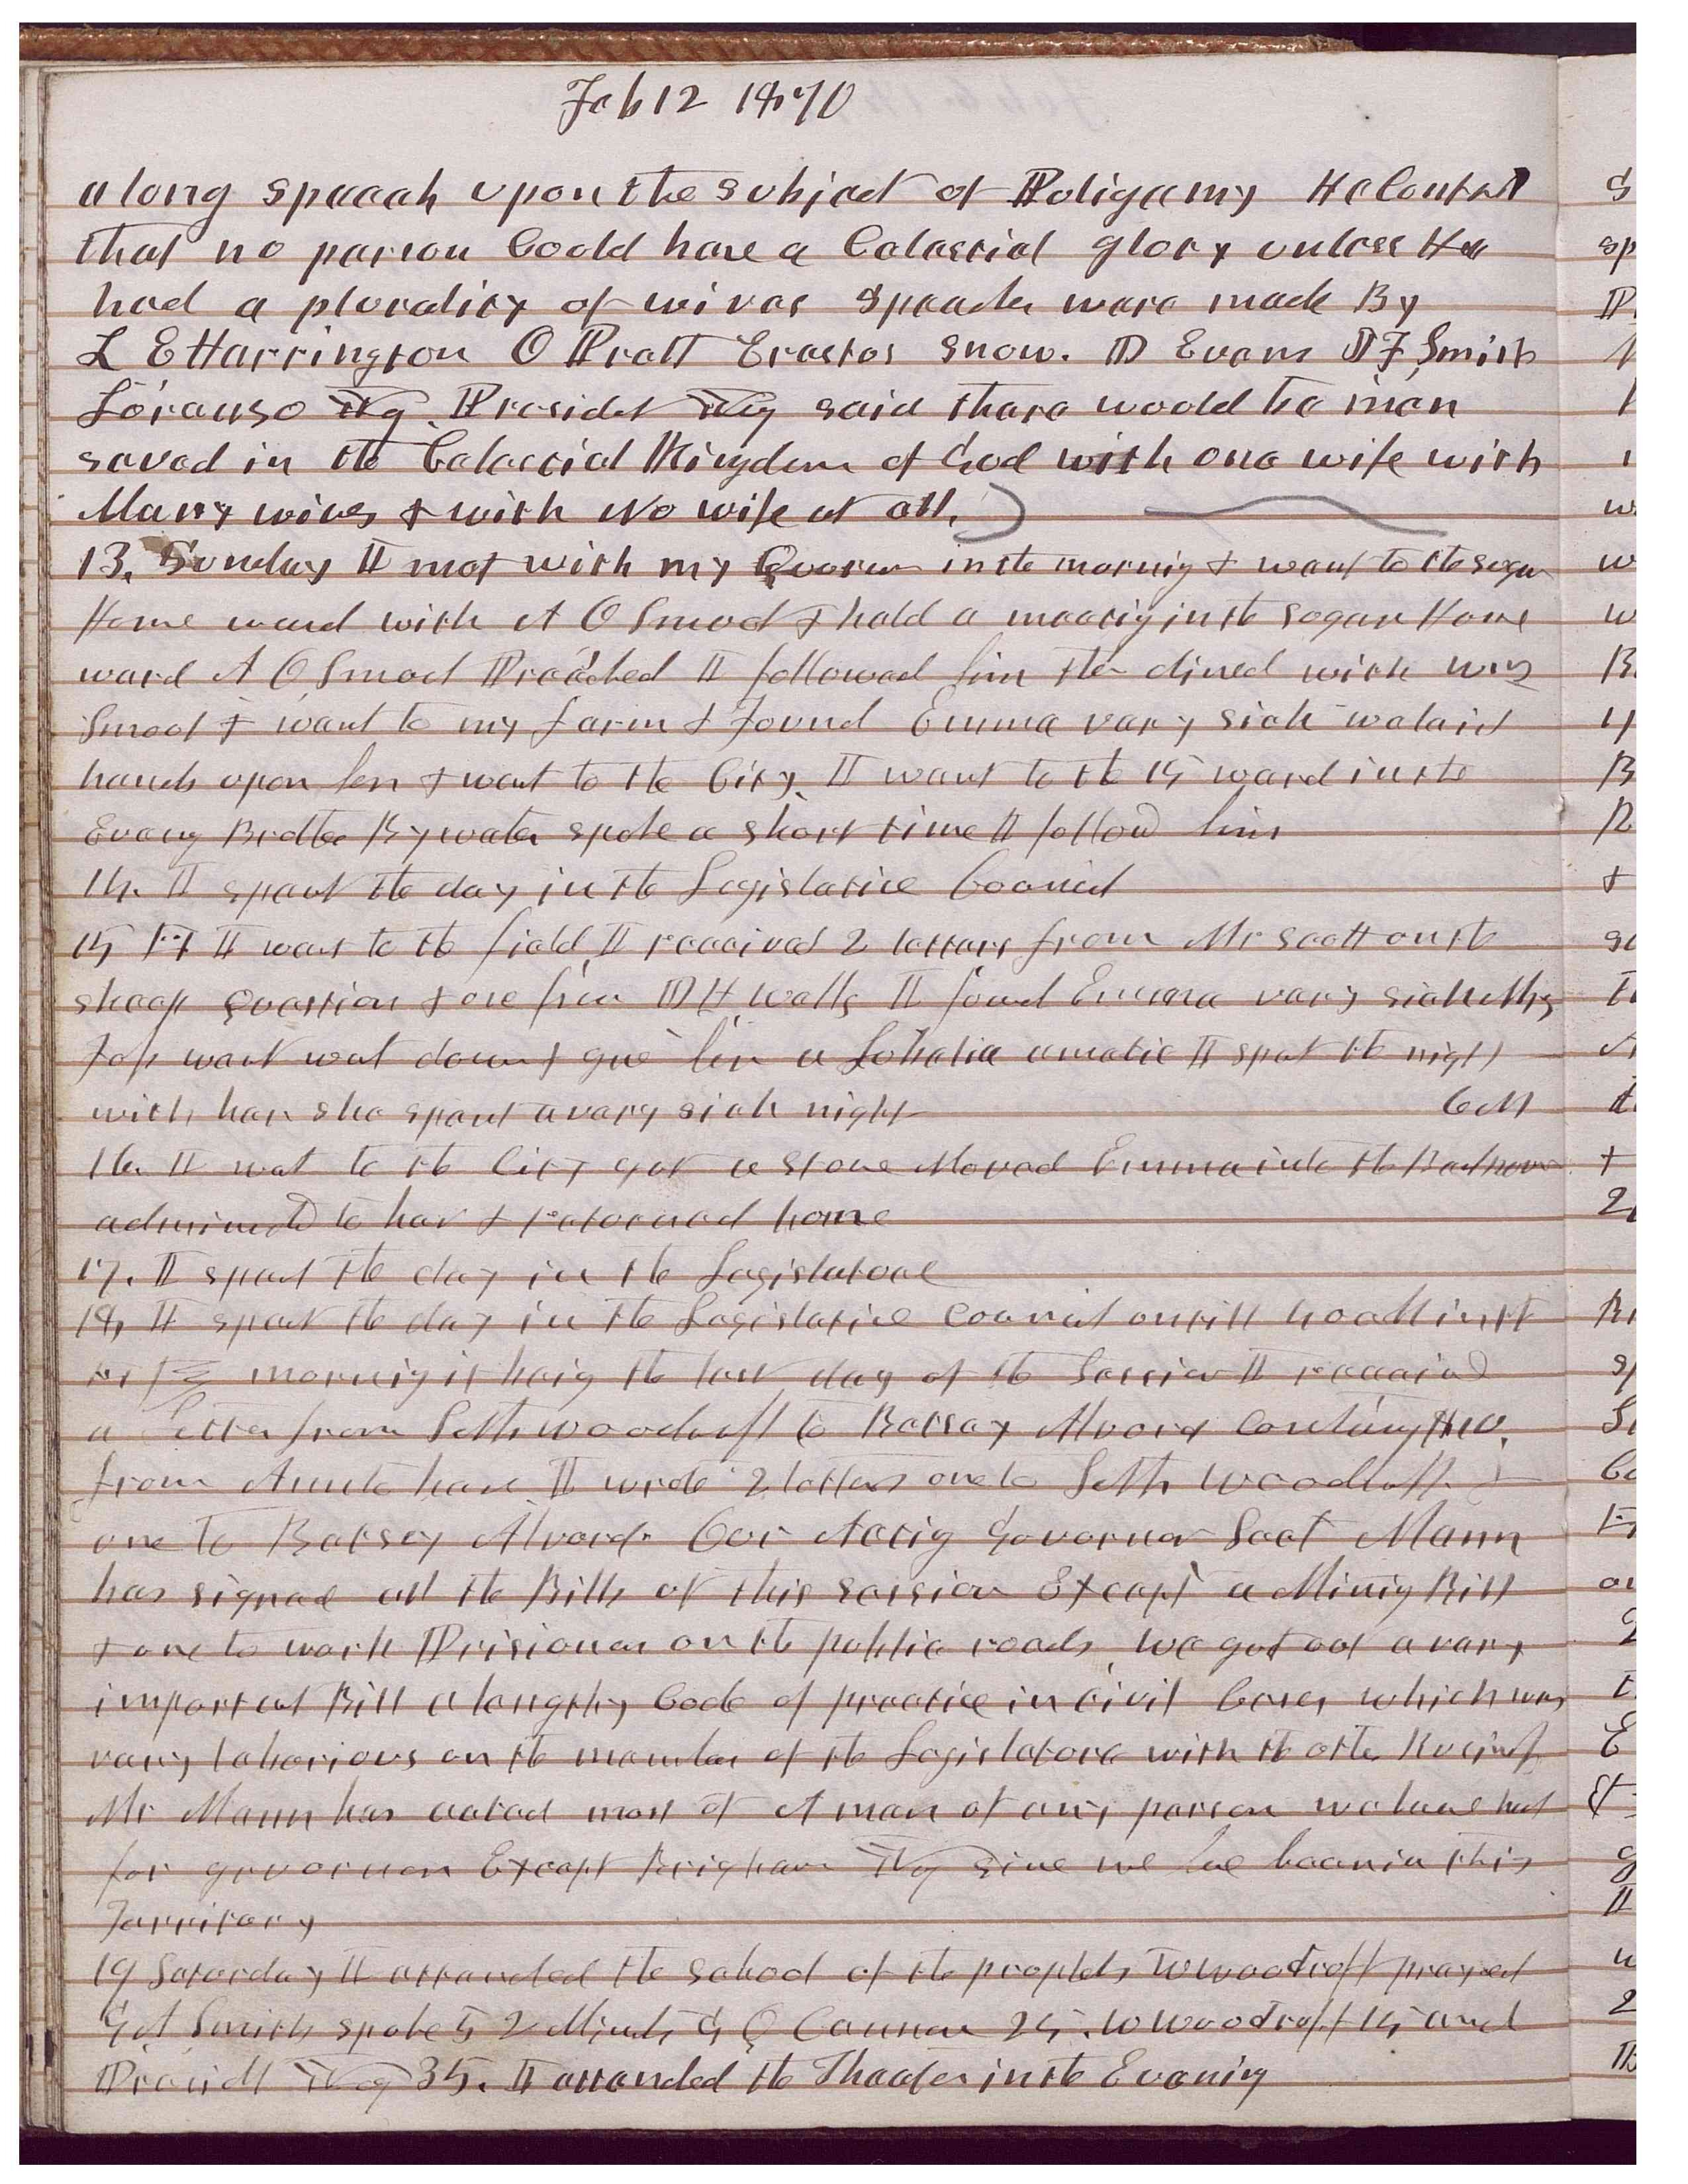 Feb 12 1870
a long speeech upon the subject of Poligamy He Contend
that no person Could have a Celestial glory unless He
had a plurality of wives Speeches were made By
L E Harrington O Pratt Erastus Snow. D Evans J F Smith
Lorenzo Yg. Presidet Yg said there would be men
saved in the Celestial Kingdom of God with one wife with
Many wives & with No wife at all.
13. Sunday I met with my Quorum in the morning & went to the Sugar
House ward with A O Smoot & held a meetig in the Sugar House
ward A O Smoot Preached I followed him then dined with wig
Smoot & went to my farm & found Emma very sick we laid
hands upon her & went to the City. I went to the 15 ward in the
Eveng Brother Bywater spoke a short time I follow him
14. I spent the day in the Legislative Council
15 I went to the field I received 2 letters from Mr Scott on the
sheep Question & one from D H Wells I found Emma very sick
went down & gave her a Lobelia emetic I spent the night
with her she spent a very sick night 6 M
16. I went to the City got a stove Moved Emma into the Bedroom
administed to her & returned home
17. I spent the day in the Legislature
18, I spent the day in the Legislative Council untill 4 oclok in the
morning it being the last day of the Session I received
a letter from Seth Woodruff to Betsey Alvord
from Aunt I wrote 2 letters one to Seth Woodruff &
one To Betsey Alvord. Our Actig Governor Soct Mann
has signed all the Bills of this session Except a Minig Bill
& one to work Prisioners on the public roads we got out a very
important Bill a lengthy Code of practice in civil Cases which was
very laborious on the members of the Legislature with the other Busines
Mr Mann has acted most of A man of any person we have had
for governor Except Brigham Yg since we have been in this
Territory
19 Saturday I attended the school of the prophets W Woodruff prayed
G A Smith spoke 52 Minuts G Q Cannon 25. W Woodruff 15 and
Presidt Yg 35. I attended the Theater in the Evenig